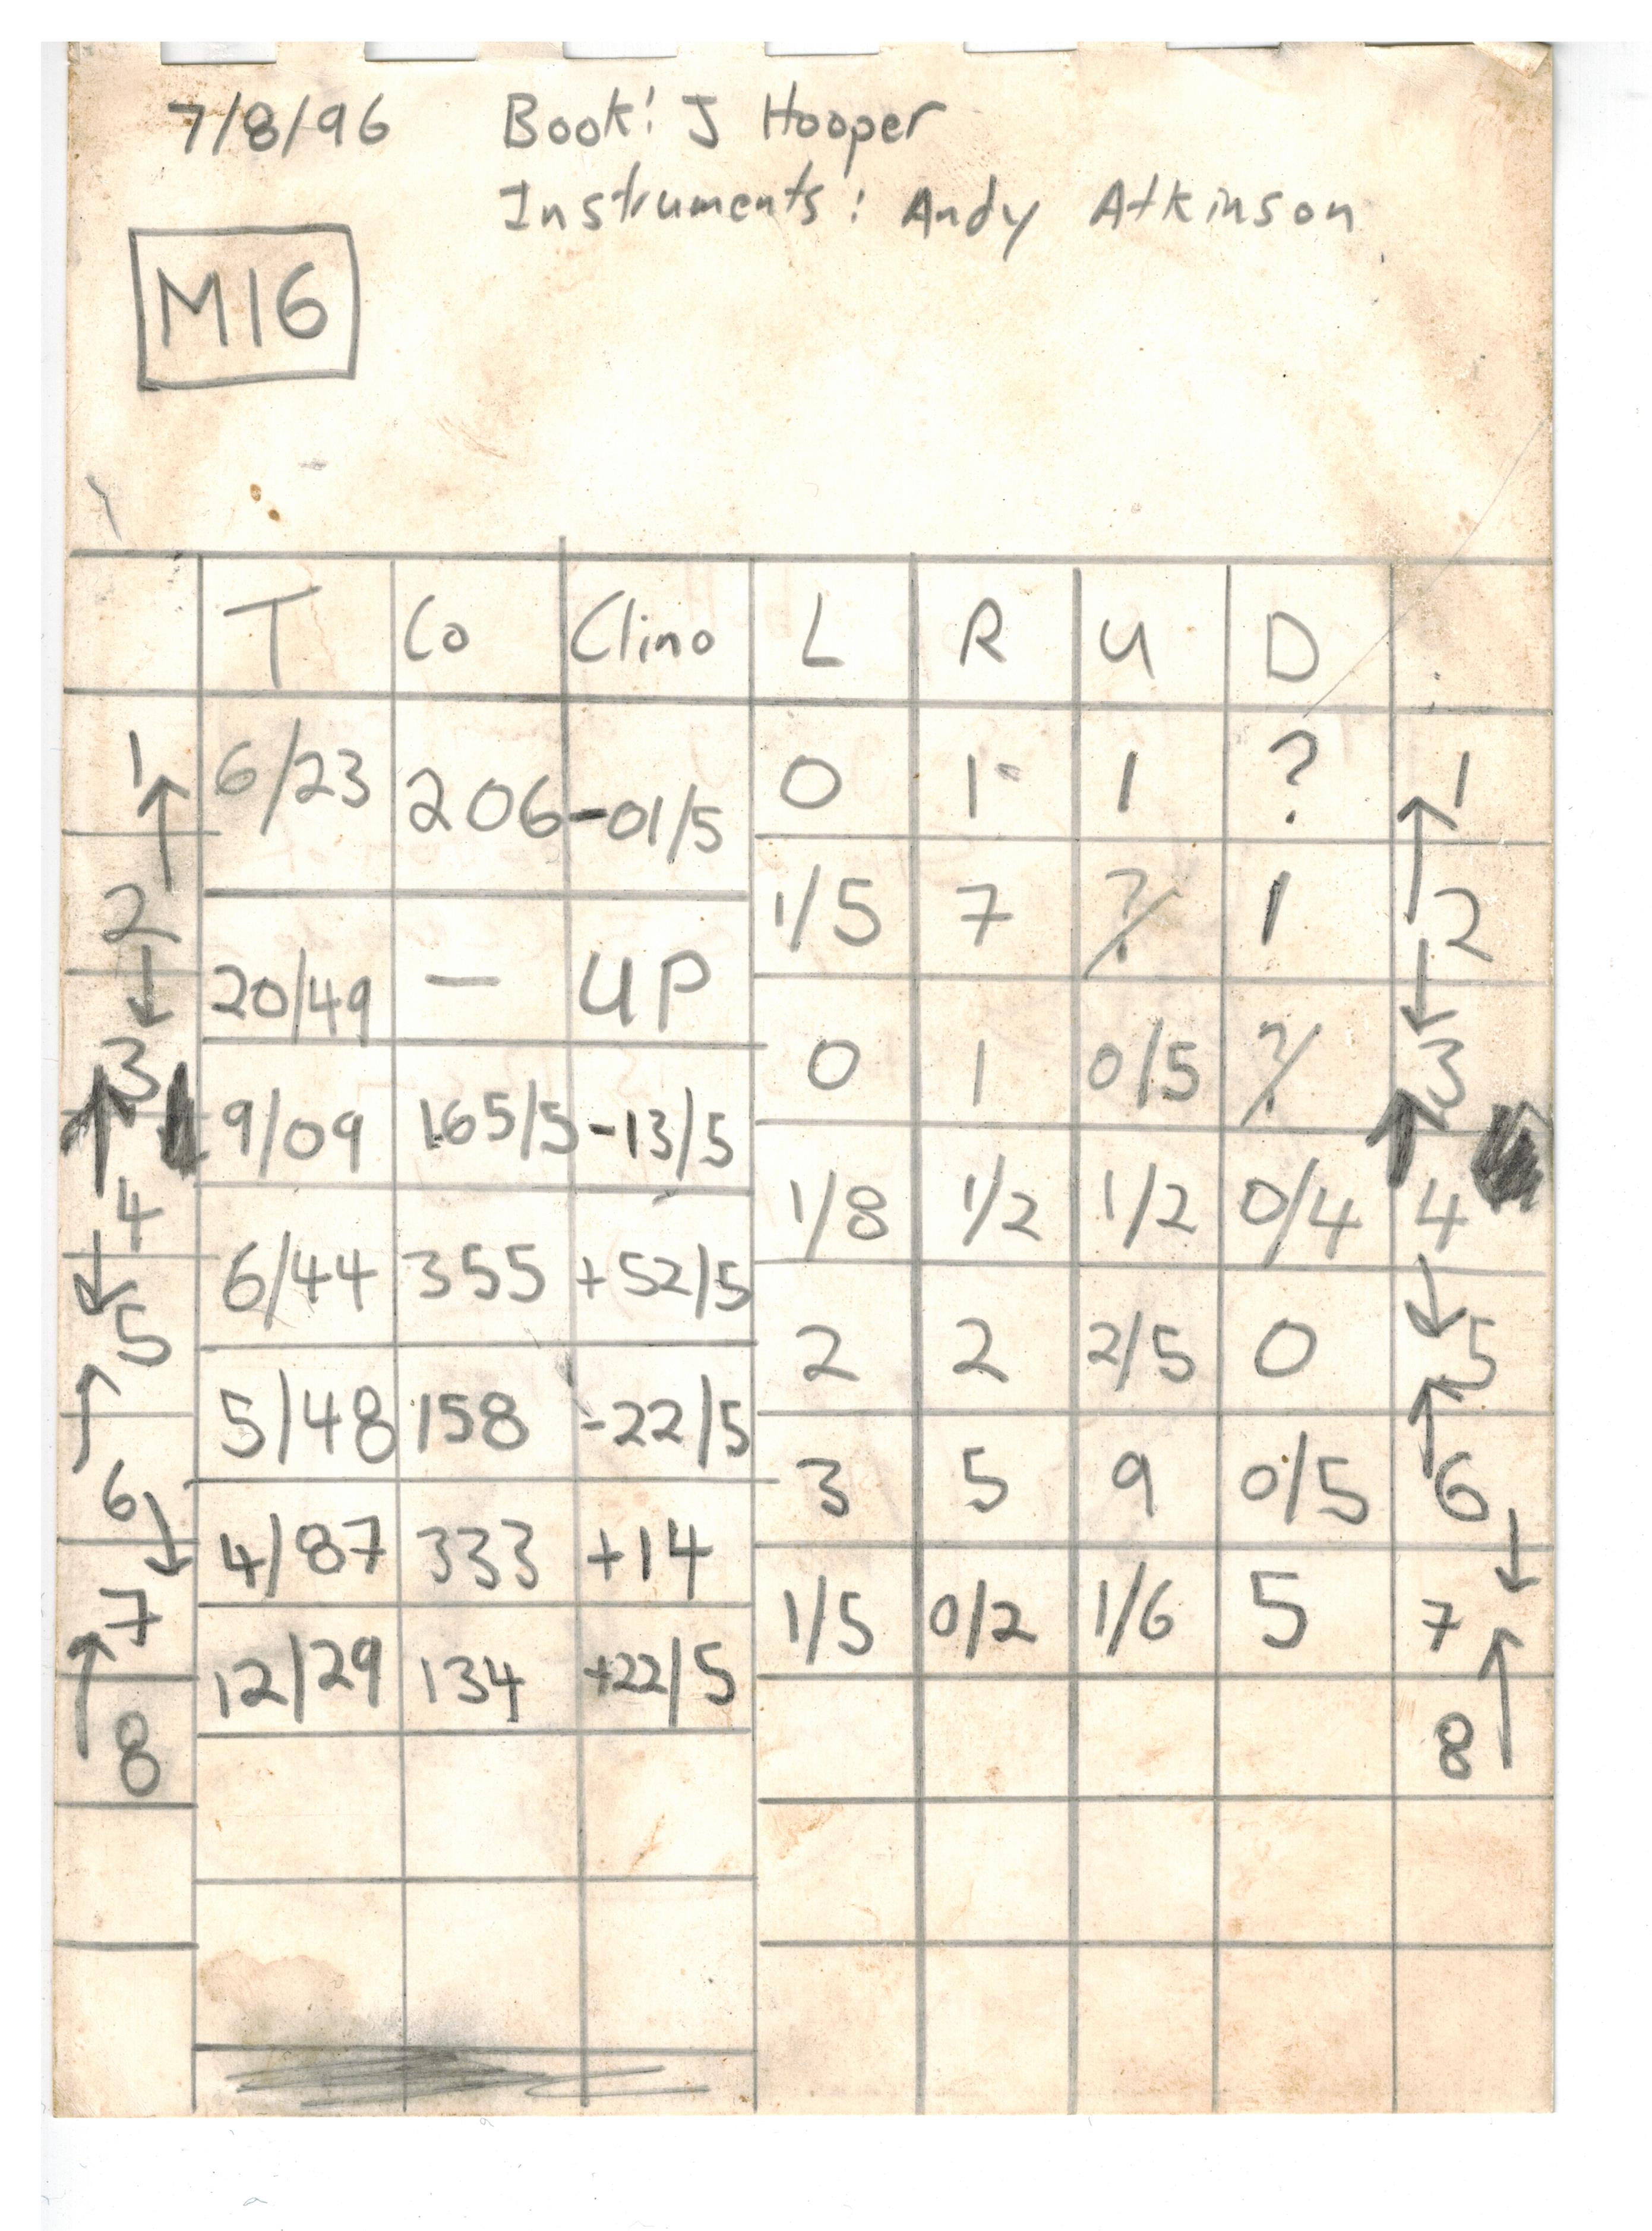 7/8/96 Book: J Hooper
Instruments: Andy Atkinson
M16
T Co Clino L R U D
1 6/23 206 -01/5 0 1 1 ? 1
2 20/49 — UP 1/5 7 ? 1 2
3 9/09 165/5 -13/5 0 1 0/5 ? 3
4 6/44 355 +52/5 1/8 1/2 1/2 0/4 4
5 5/48 158 -22/5 2 2 2/5 0 5
6 4/87 333 +14 3 5 9 0/5 6
7 12/29 134 +22/5 1/5 0/2 1/6 5 7
8 8